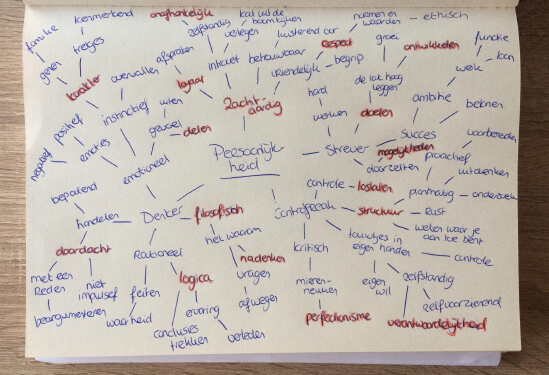 familie
kenmerkend
onafhankelijk
kat uit de
boom kijken
normen en
waarden
ethisch
genen
trekjes
zelfstandig
luisterend oor
respect
groei
functie
karakter
overvallen
afspraken
loyaal
introvert
betrouwbaar
begrip
vriendelijk
ontwikkelen
baan
de lat hoog
leggen
werk
positief
instinctief
uiten
zachtaardig
hard
ambitie
belonen
negatief
emoties
gevoel
delen
werken
doelen
succes
voorbereiden
emotioneel
Persoonlijk-
heid
Strever
mogelijkheden
proactief
uitdenken
doorzetten
bepalend
controle
loslaten
planmatig
onderzoek
handelen
Denker
filosofisch
Controlfreak
structuur
rust
weten waar je
aan toe bent
doordacht
het waarom
touwtjes in
eigen handen
controle
Rationeel
nadenken
kritisch
met een
reden
niet
impulsief
feiten
logica
vragen
eigen
wil
zelfstandig
mieren-
neuken
zelfvoorzienend
beargumenteren
waarheid
ervaring
afwegen
conclusies
trekken
verleden
perfectionisme
verantwoordelijkheid